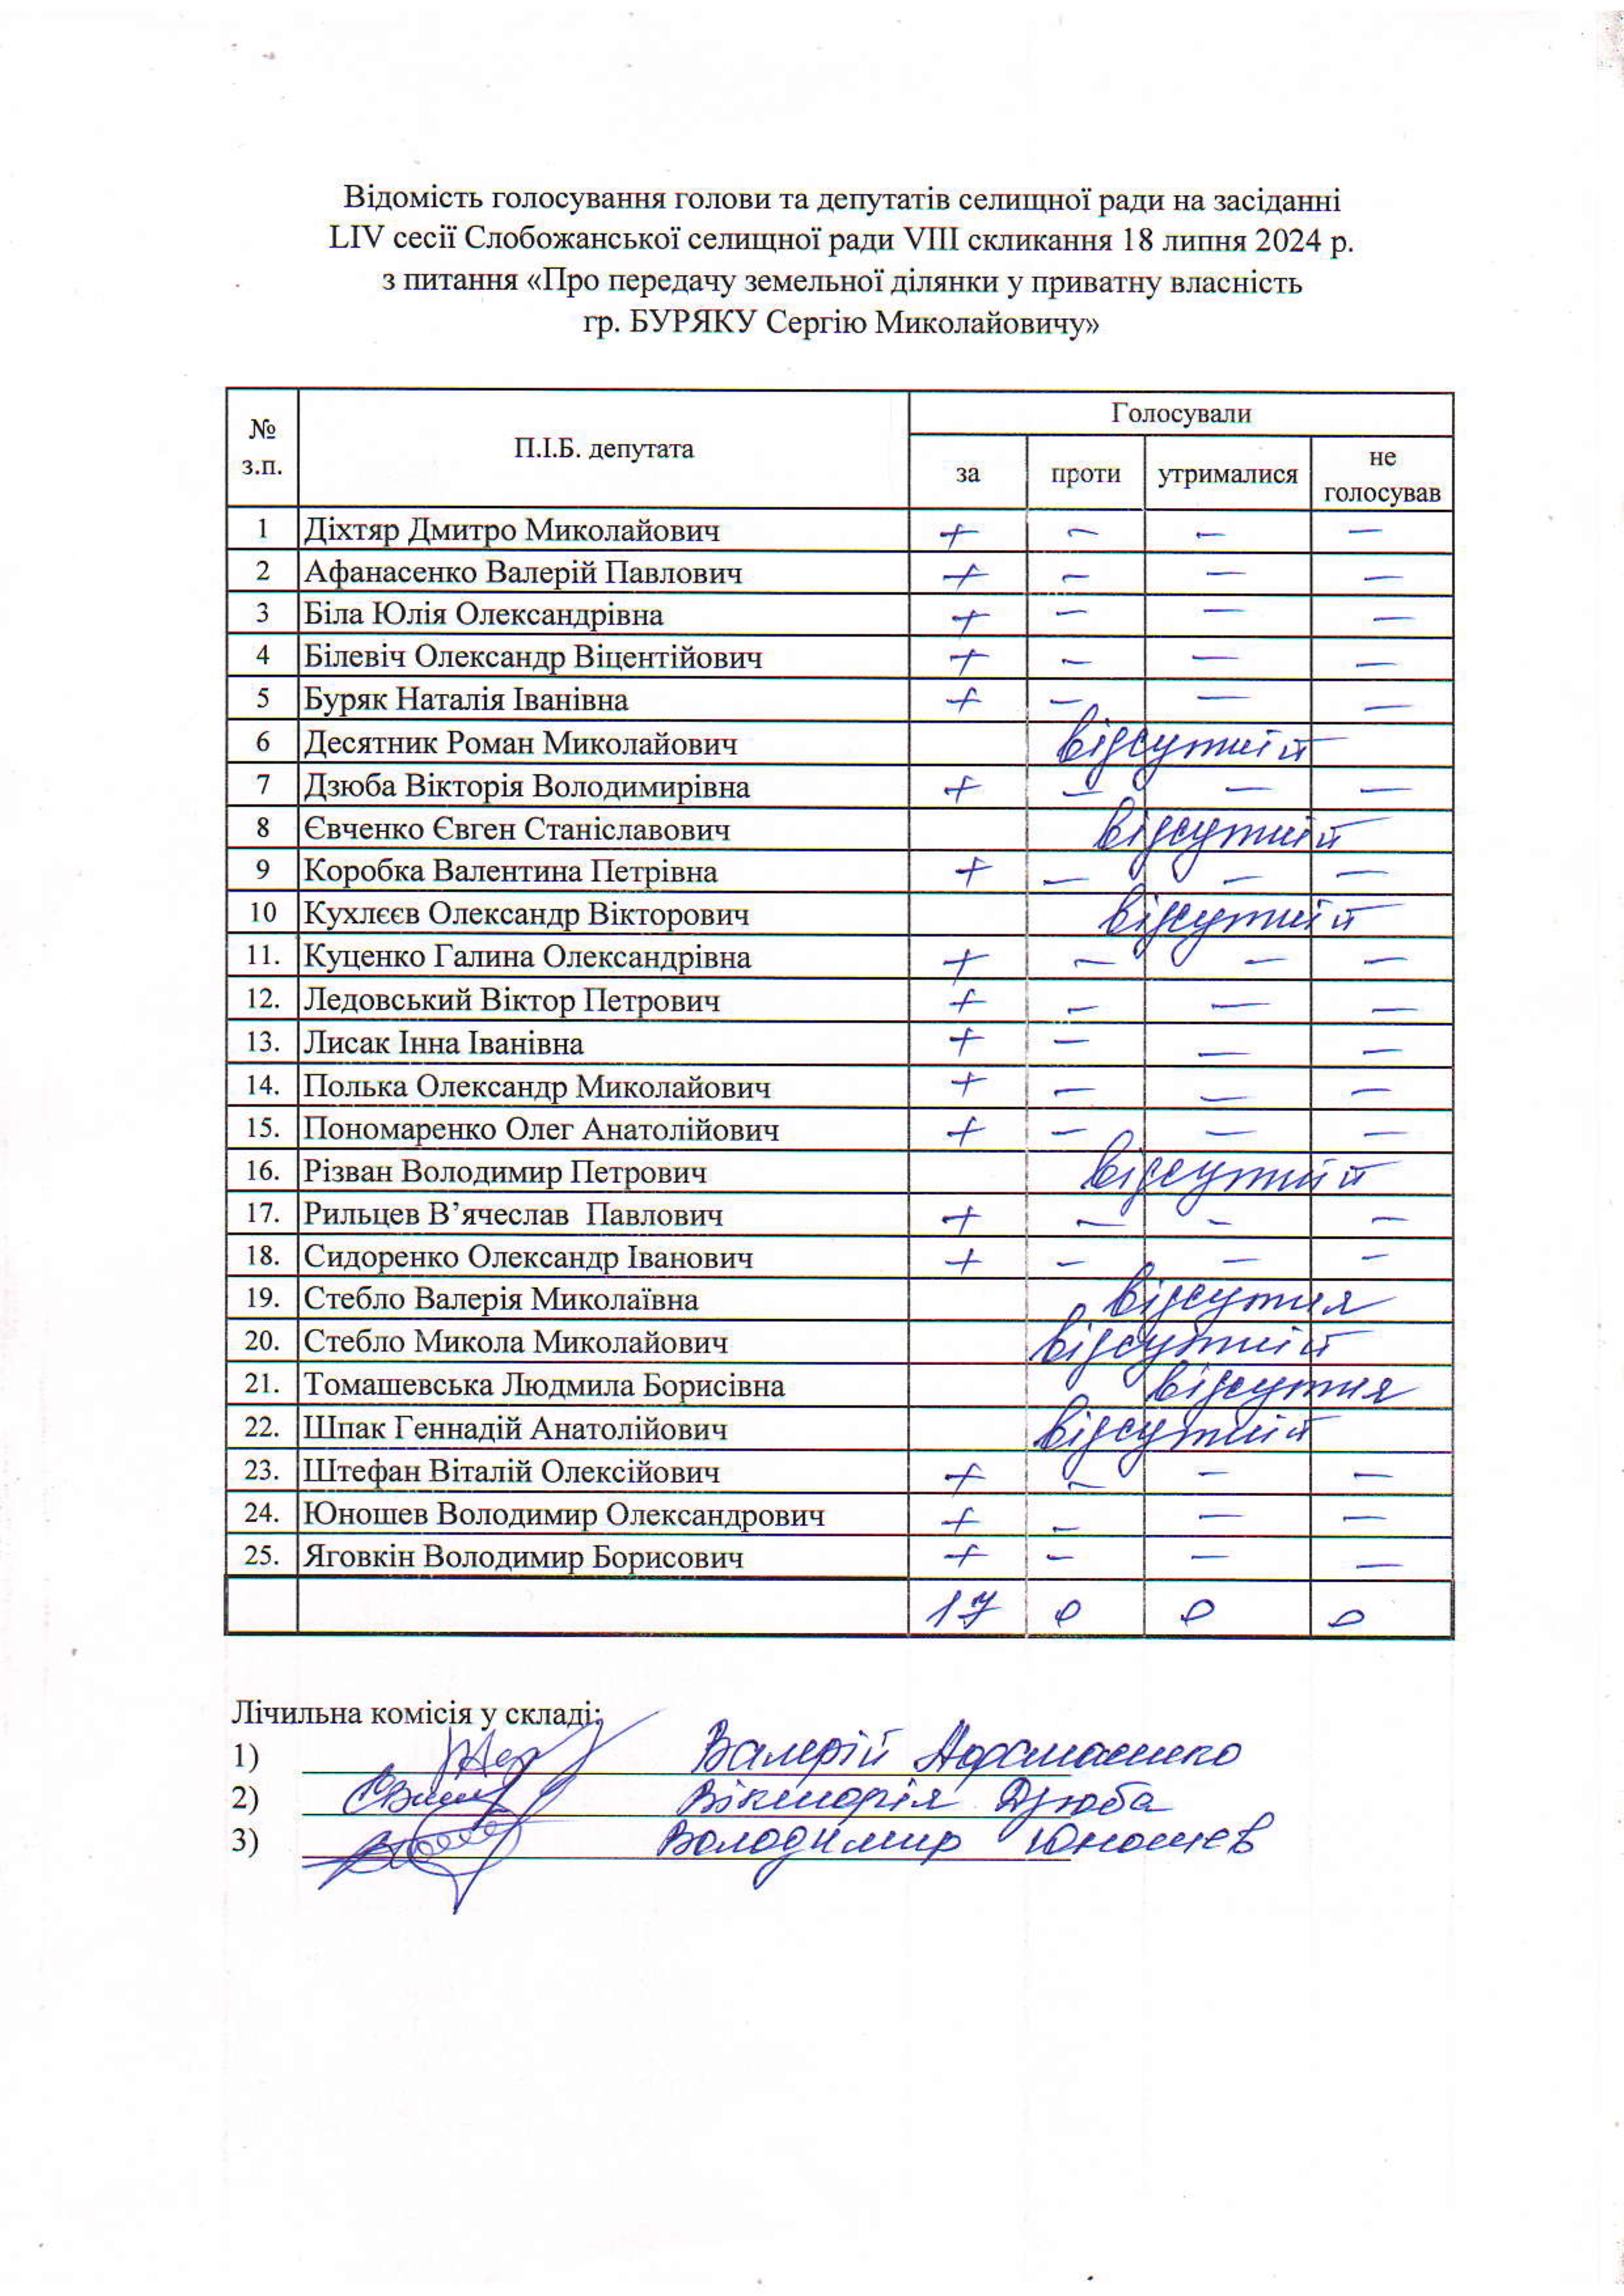 Відомість голосування голови та депутатів селищної ради на засіданні
LIV сесії Слобожанської селищної ради VIII скликання 18 липня 2024 р.
з питання «Про передачу земельної ділянки у приватну власність
гр. БУРЯКУ Сергію Миколайовичу»
№ з.п. П.І.Б. депутата Голосували
за проти утрималися не голосував
1 Діхтяр Дмитро Миколайович + – – –
2 Афанасенко Валерій Павлович + – – –
3 Біла Юлія Олександрівна + – – –
4 Білевіч Олександр Віцентійович + – – –
5 Буряк Наталія Іванівна + – – –
6 Десятник Роман Миколайович відсутній
7 Дзюба Вікторія Володимирівна + – – –
8 Євченко Євген Станіславович відсутній
9 Коробка Валентина Петрівна + – – –
10 Кухлєєв Олександр Вікторович відсутній
11. Куценко Галина Олександрівна + – – –
12. Ледовський Віктор Петрович + – – –
13. Лисак Інна Іванівна + – – –
14. Полька Олександр Миколайович + – – –
15. Пономаренко Олег Анатолійович + – – –
16. Різван Володимир Петрович відсутній
17. Рильцев В’ячеслав Павлович + – – –
18. Сидоренко Олександр Іванович + – – –
19. Стебло Валерія Миколаївна відсутня
20. Стебло Микола Миколайович відсутній
21. Томашевська Людмила Борисівна відсутня
22. Шпак Геннадій Анатолійович відсутній
23. Штефан Віталій Олексійович + – – –
24. Юношев Володимир Олександрович + – – –
25. Яговкін Володимир Борисович + – – –
17 0 0 0
Лічильна комісія у складі:
1) Валерій Афанасенко
2) Вікторія Дзюба
3) Володимир Юношев